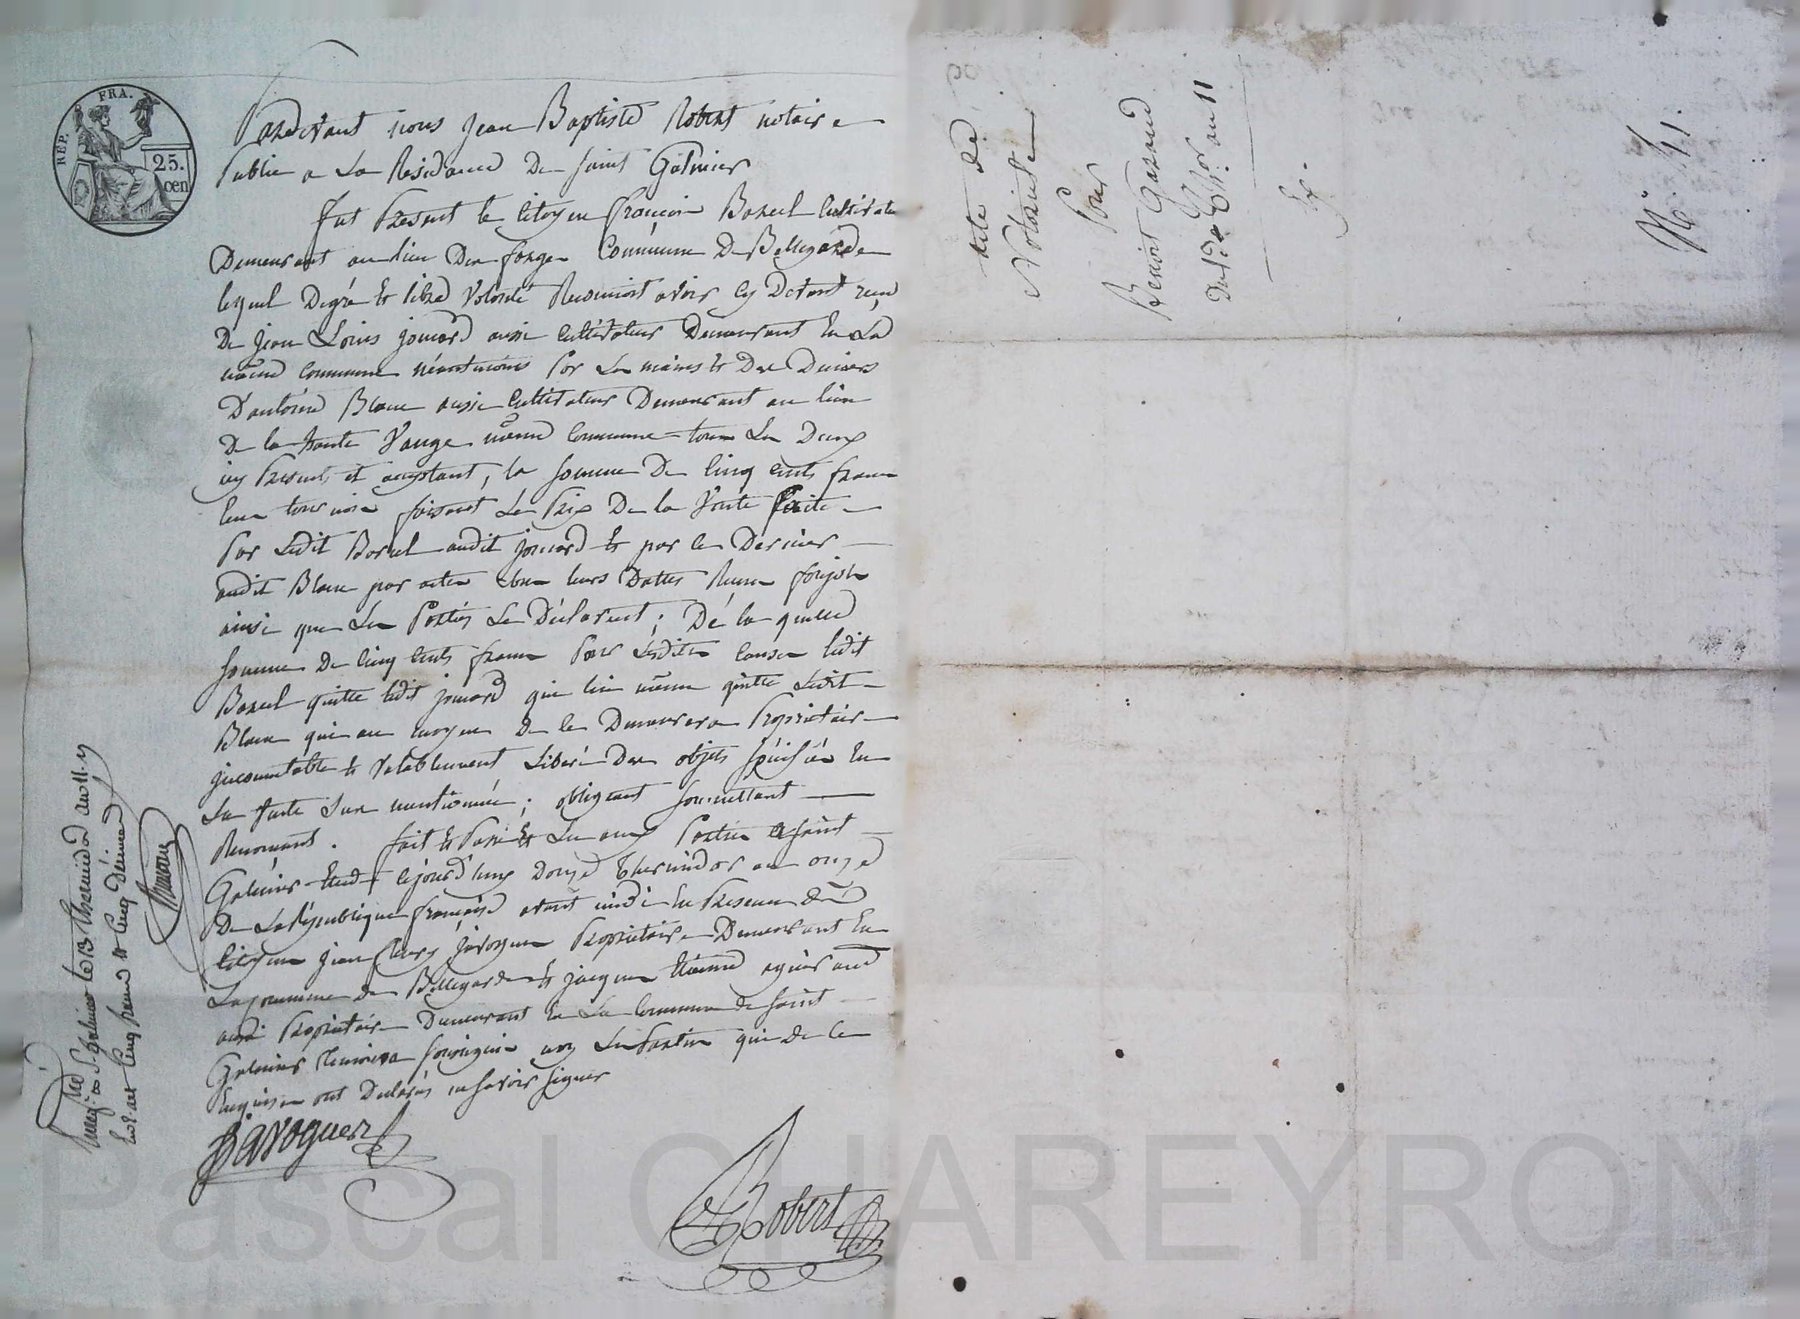 REP. FRA.
25.
cen
Pardevant nous Jean Baptiste Robert notaire
Public a La Residance De Saint Galmier
fut Present le Citoyen françois Boxeul Cultivateur
Demeurant au lieu Des forges Commune De Bellegarde
lequel De gré et libre Volonté Reconnoit avoir cy Devant reçu
De Jean Louis jomard aussi Cultivateur Demeurant En La
même Commune néantmoins Par Les mains et Des Deniers
D'antoine Blanc aussi Cultivateur Demeurant au lieu
De la haute Vauge même Commune tous Les Deux
icy Présents et acceptant, la somme De Cinq Cents francs
faisant Le Prix De la Vente faite
Par Ledit audit jomard et par Ce Dernier
audit Blanc par actes sous leurs Dattes
ainsi que Les Parties Le Déclarent ; De la quelle
Somme De Cinq Cents francs Pour Lesdites Causes ledit
quitte ledit jomard qui lui même quitte Ledit
Blanc qui au moyen De Ce Demeurera Propriétaire
jncommutable et Valablement Libéré Des objets En
La Vente Sus mentionnée ; obligeant Soumettant
Renonçant. fait et Passé Les aux Parties a Saint
Galmier Etude Cejourd'huy Douze Thermidor an onze
De La République française avant midi En Presence Du
Citoyen Jean javogues Propriétaire Demeurant En
La Commune De Bellegarde et Jacques Etienne
aussi Propriétaire Demeurant En La Commune de Saint
Galmier Temoins Soussignés non Les Parties qui de Ce
Enquises ont Declarés ne Savoir Signer
Javogues
Robert
Enreg. a St. Galmier le 13 thermidor an 11.
acte de
Notorieté
Pour
Benoit
Du 12 Thor an 11
N. 41.
Pascal CHAREYRON